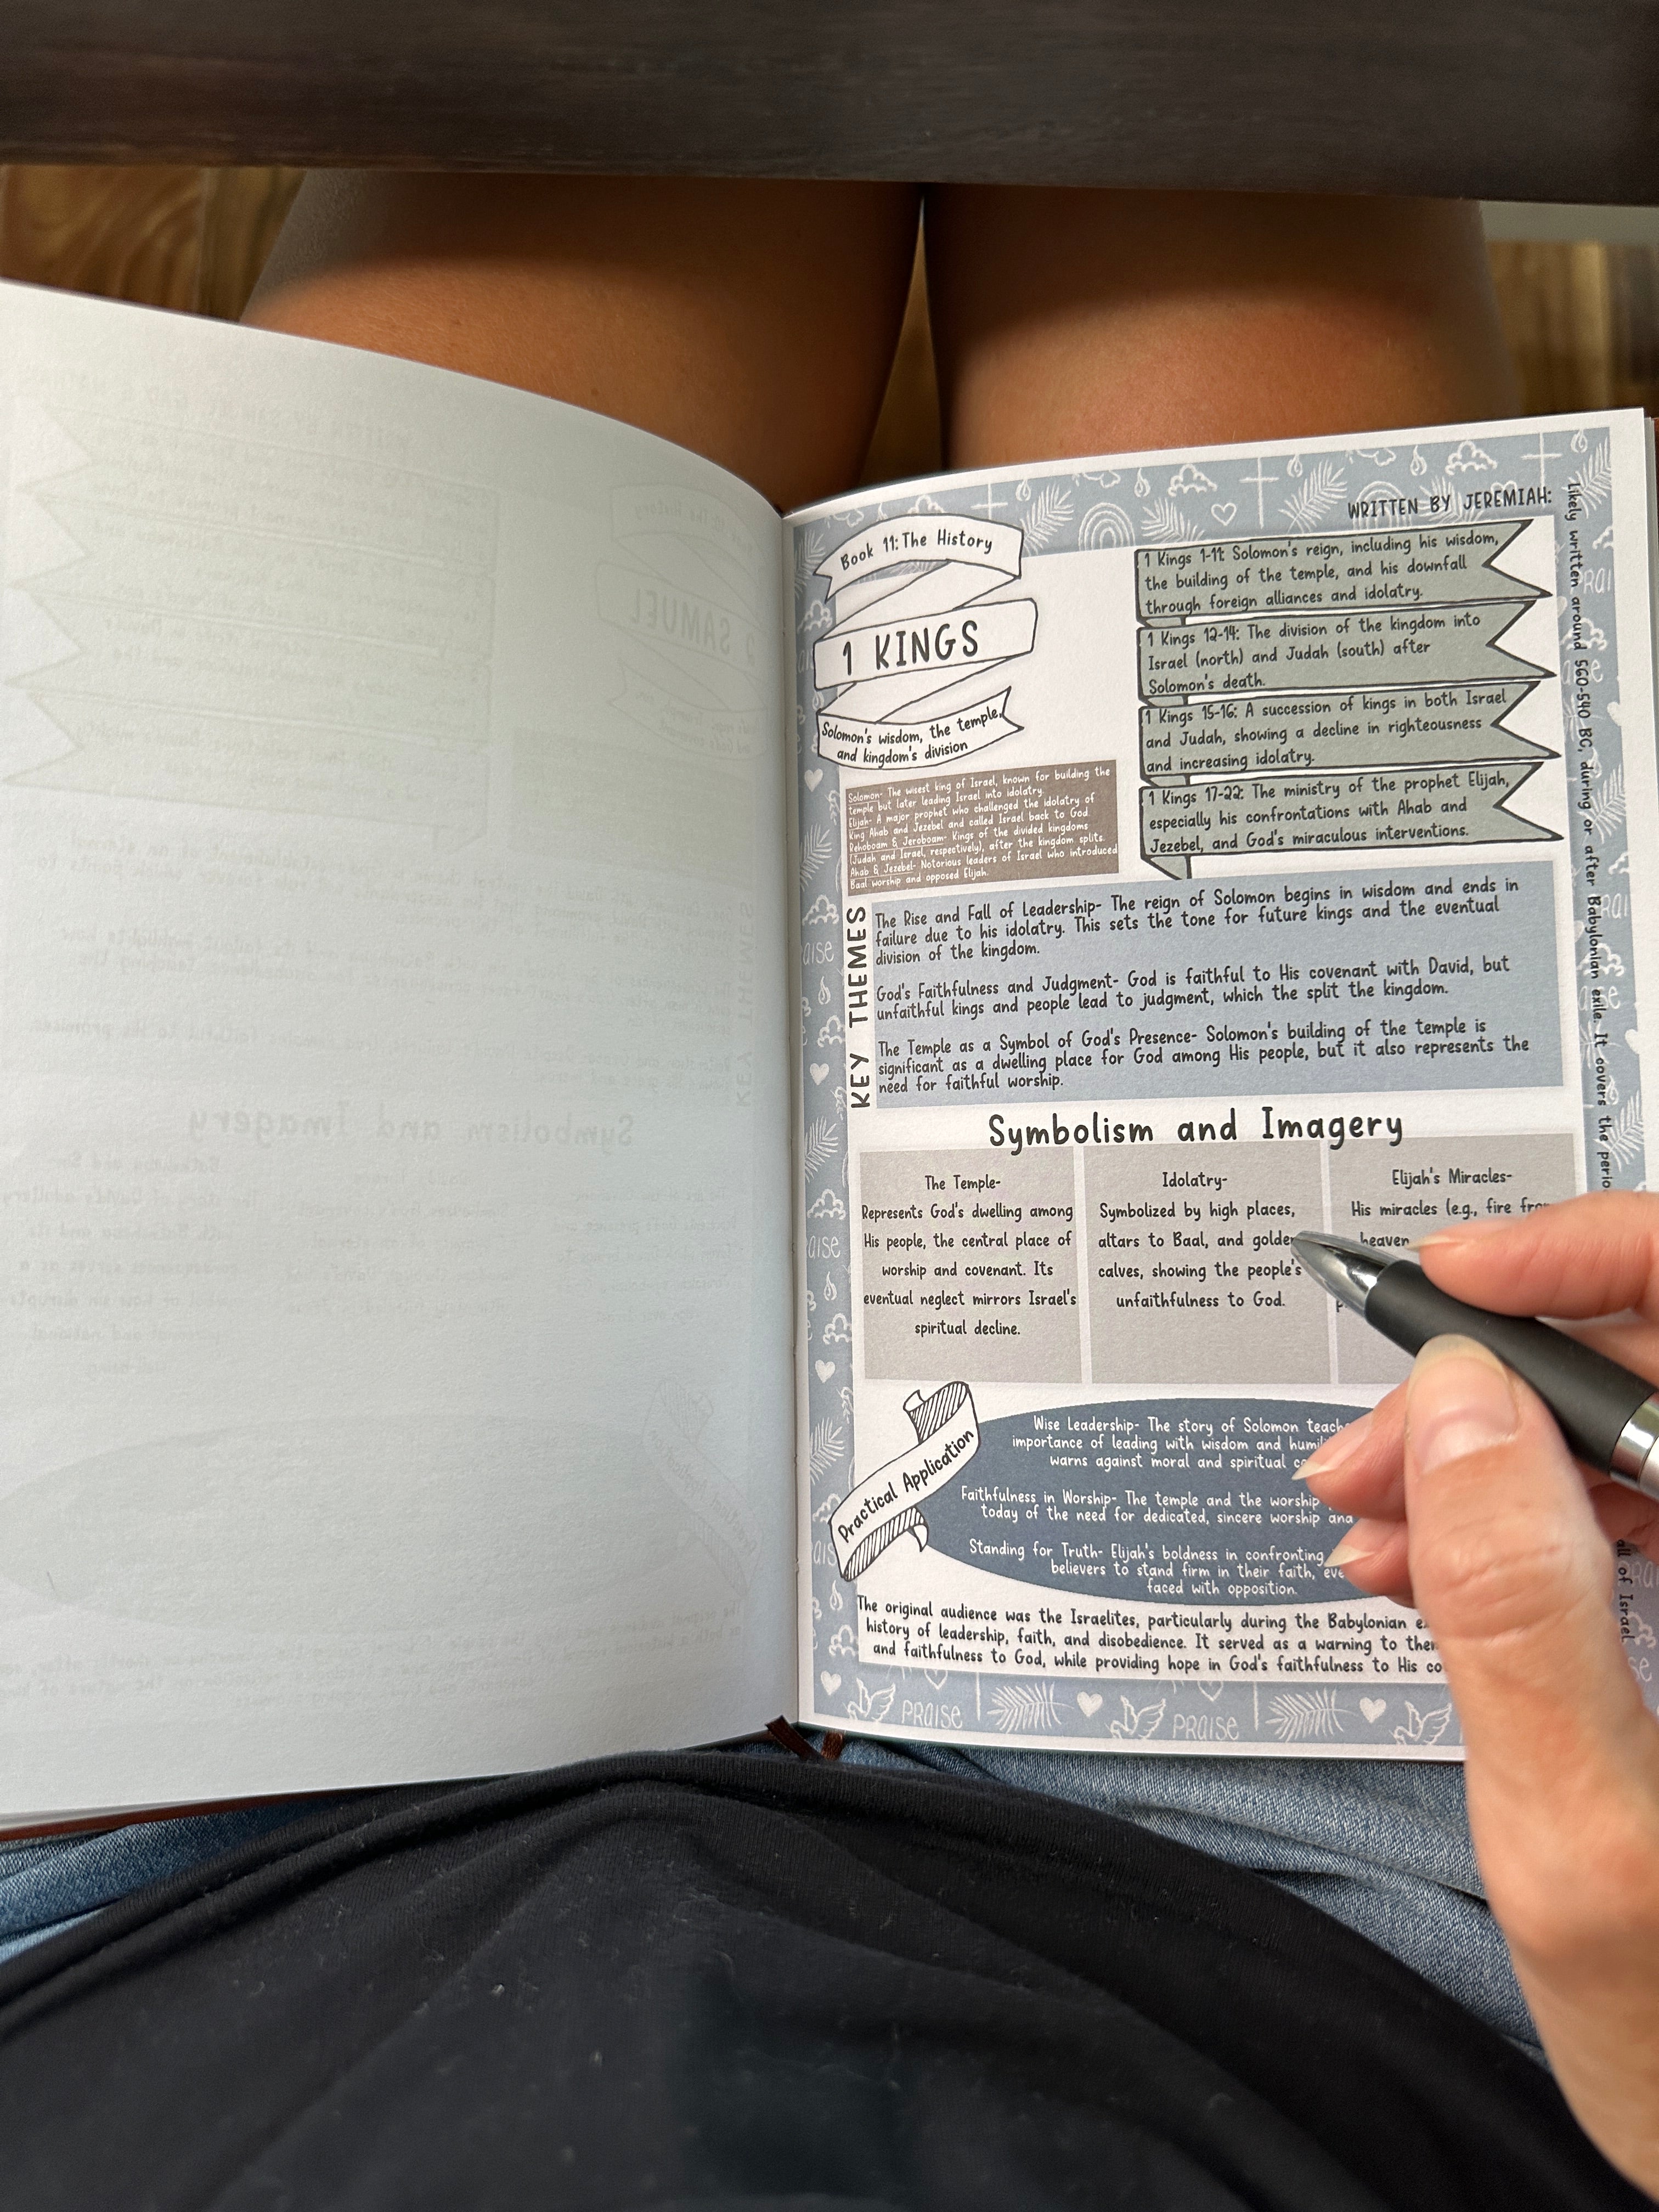 Book 11: The History
1 KINGS
Solomon's wisdom, the temple,
and kingdom's division
WRITTEN BY JEREMIAH:
1 Kings 1-11: Solomon's reign, including his wisdom,
the building of the temple, and his downfall
through foreign alliances and idolatry.
1 Kings 12-14: The division of the kingdom into
Israel (north) and Judah (south) after
Solomon's death.
1 Kings 15-16: A succession of kings in both Israel
and Judah, showing a decline in righteousness
and increasing idolatry.
1 Kings 17-22: The ministry of the prophet Elijah,
especially his confrontations with Ahab and
Jezebel, and God's miraculous interventions.
Likely written around 560-540 BC, during or after Babylonian exile. It covers the
all of Israel
Solomon- The wisest king of Israel, known for building the
temple but later leading Israel into idolatry.
Elijah- A major prophet who challenged the idolatry of
King Ahab and Jezebel and called Israel back to God.
Rehoboam & Jeroboam- Kings of the divided kingdoms
(Judah and Israel, respectively), after the kingdom splits.
Ahab & Jezebel- Notorious leaders of Israel who introduced
Baal worship and opposed Elijah.
KEY THEMES
The Rise and Fall of Leadership- The reign of Solomon begins in wisdom and ends in
failure due to his idolatry. This sets the tone for future kings and the eventual
division of the kingdom.
God's Faithfulness and Judgment- God is faithful to His covenant with David, but
unfaithful kings and people lead to judgment, which the split the kingdom.
The Temple as a Symbol of God's Presence- Solomon's building of the temple is
significant as a dwelling place for God among His people, but it also represents the
need for faithful worship.
Symbolism and Imagery
The Temple-
Represents God's dwelling among
His people, the central place of
worship and covenant. Its
eventual neglect mirrors Israel's
spiritual decline.
Idolatry-
Symbolized by high places,
altars to Baal, and golden
calves, showing the people's
unfaithfulness to God.
Elijah's Miracles-
His miracles (e.g., fire from
heaven
Practical Application
Wise Leadership- The story of Solomon
importance of leading with wisdom and
warns against moral and spiritual
Faithfulness in Worship- The temple and the worship
today of the need for dedicated, sincere worship and
Standing for Truth- Elijah's boldness in confronting
believers to stand firm in their faith,
faced with opposition.
The original audience was the Israelites, particularly during the Babylonian
history of leadership, faith, and disobedience. It served as a warning to
and faithfulness to God, while providing hope in God's faithfulness to His
PRAISE
PRAISE
2 SAMUEL
Symbolism and Imagery